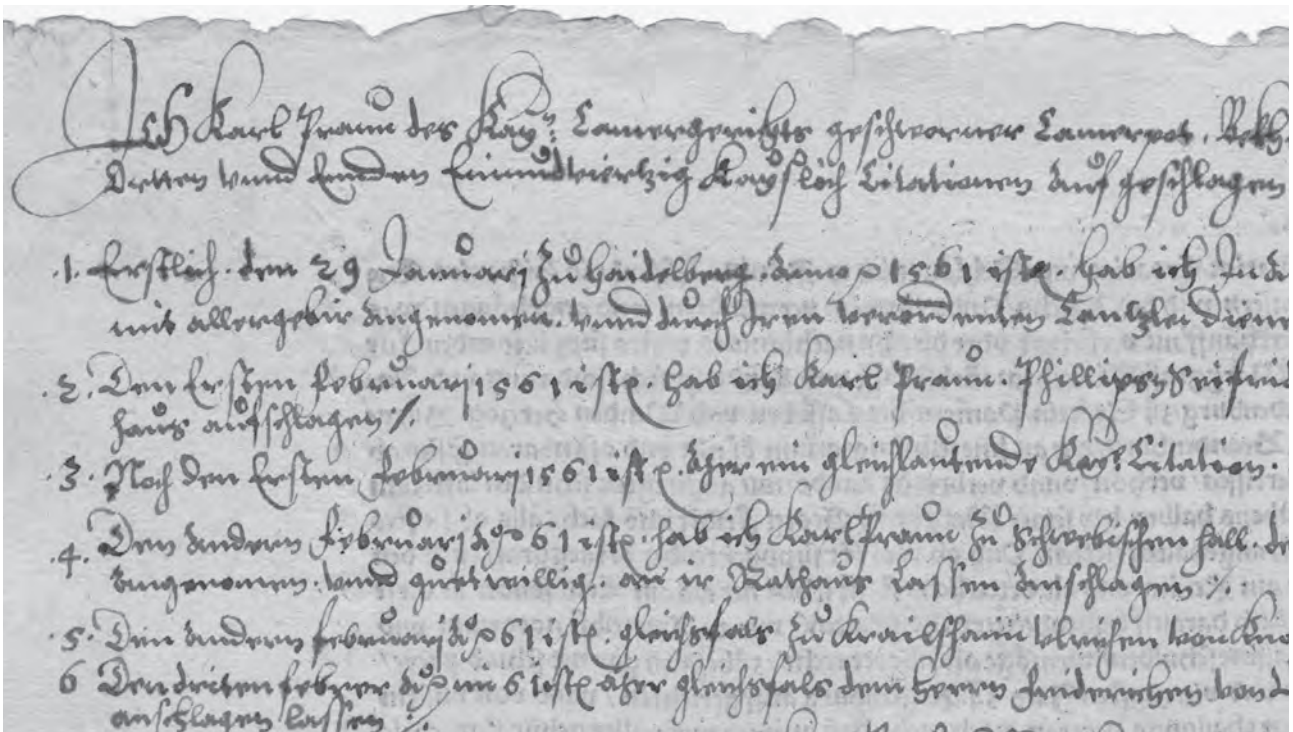 Ich Karl Praun des Kay: Camergerichts geschworner Camerpot.
Ortten vnnd Enden Einundviertzig Kayslich Citationen Auf geschlagen
.1. Erstlich. den 29 Januarj Zu Haidelberg. Anno 1561 ist. hab ich In
mit aller gebir Angenomen. vnnd durch Iren verordenten Cantzlei diene
.2. Den Ersten February 1561 ist. hab ich Karl Praun. Phillipsen Seifrid
haus aufschlagen
.3. Noch den Ersten February 1561 ist. Aber ein gleichlautende Kays Citation.
.4. Den Andern February Ao 61 ist. hab ich Karl Praun Zu Schwebischen Hall.
Angenomen. vnnd guetwillig. an ir Rathaus Lassen Anschlagen
.5. Den Andern February Ao 61 ist. gleichsfals Zu Krailshaim Vlrichen von
6 Den driten februer Ao im 61 ist Aber gleichsfals dem Herrn Friderichen von
anschlagen lassen